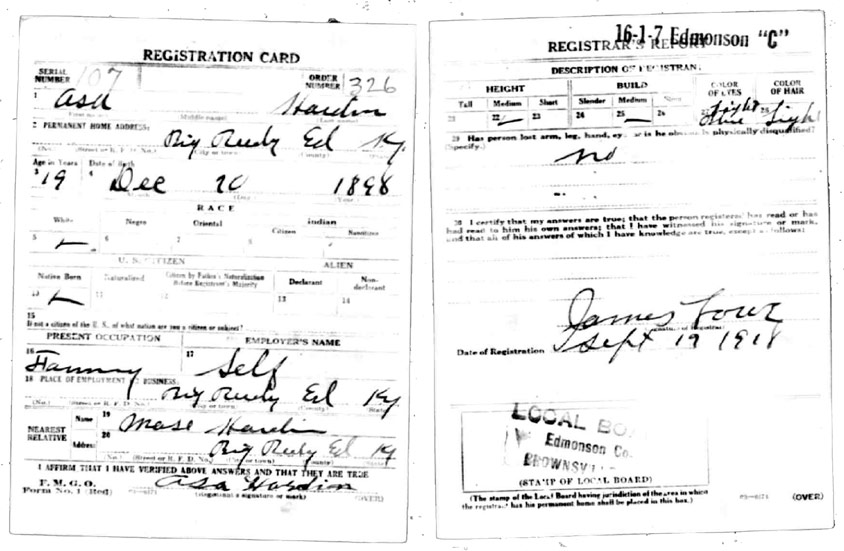 REGISTRATION CARD
SERIAL NUMBER 107
ORDER NUMBER 326
1 Asa Hardin
(Middle name)
2 PERMANENT HOME ADDRESS:
Big Reedy Ed Ky
(No.) (Street or R. F. D. No.) (City or town) (County) (State)
Age in Years Date of Birth
3 19 4 Dec 20 1898
RACE
White Negro Oriental Indian
Citizen Noncitizen
5 6 7 8
U. S. CITIZEN ALIEN
Native Born Naturalized Citizen by Father's Naturalization Before Registrant's Majority Declarant Non-declarant
10 11 12 13 14
15
If not a citizen of the U. S., of what nation are you a citizen or subject?
PRESENT OCCUPATION EMPLOYER'S NAME
16 Farming 17 Self
18 PLACE OF EMPLOYMENT OR BUSINESS:
Big Reedy Ed Ky
(No.) (Street or R. F. D. No.) (City or town) (County) (State)
NEAREST RELATIVE
Name 19 Mose Hardin
Address 20 Big Reedy Ed Ky
(No.) (Street or R. F. D. No.) (City or town) (County) (State)
I AFFIRM THAT I HAVE VERIFIED ABOVE ANSWERS AND THAT THEY ARE TRUE
P. M. G. O.
Form No. 1 (Red)
Asa Hardin
(Registrant's signature or mark) (OVER)
16-1-7 Edmonson "C"
REGISTRAR'S REPORT
DESCRIPTION OF REGISTRANT
HEIGHT BUILD COLOR OF EYES COLOR OF HAIR
Tall Medium Short Slender Medium Stout
21 22 23 24 25 26 27 Light Blue 28 Light
29 Has person lost arm, leg, hand, eye, or is he obviously physically disqualified?
(Specify.)
no
30 I certify that my answers are true; that the person registered has read or has
had read to him his own answers; that I have witnessed his signature or mark,
and that all of his answers of which I have knowledge are true, except as follows:
James
(Signature of Registrar)
Date of Registration Sept 12 1918
LOCAL BO
Edmonson Co.
BROWNSV
(STAMP OF LOCAL BOARD)
(The stamp of the Local Board having jurisdiction of the area in which
the registrant has his permanent home shall be placed in this box.)
(OVER)